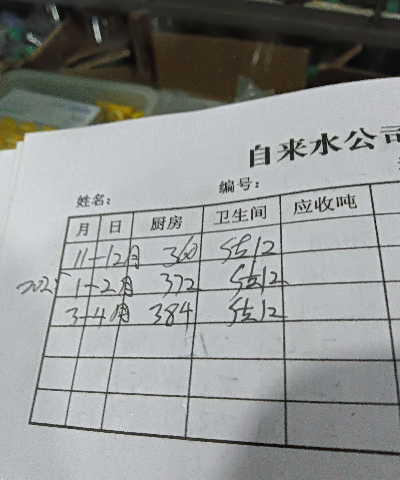 自来水公司
姓名： 编号：
月 日 厨房 卫生间 应收吨
11-12月 360 结12
2025 1-2月 372 结12
3-4月 384 结12